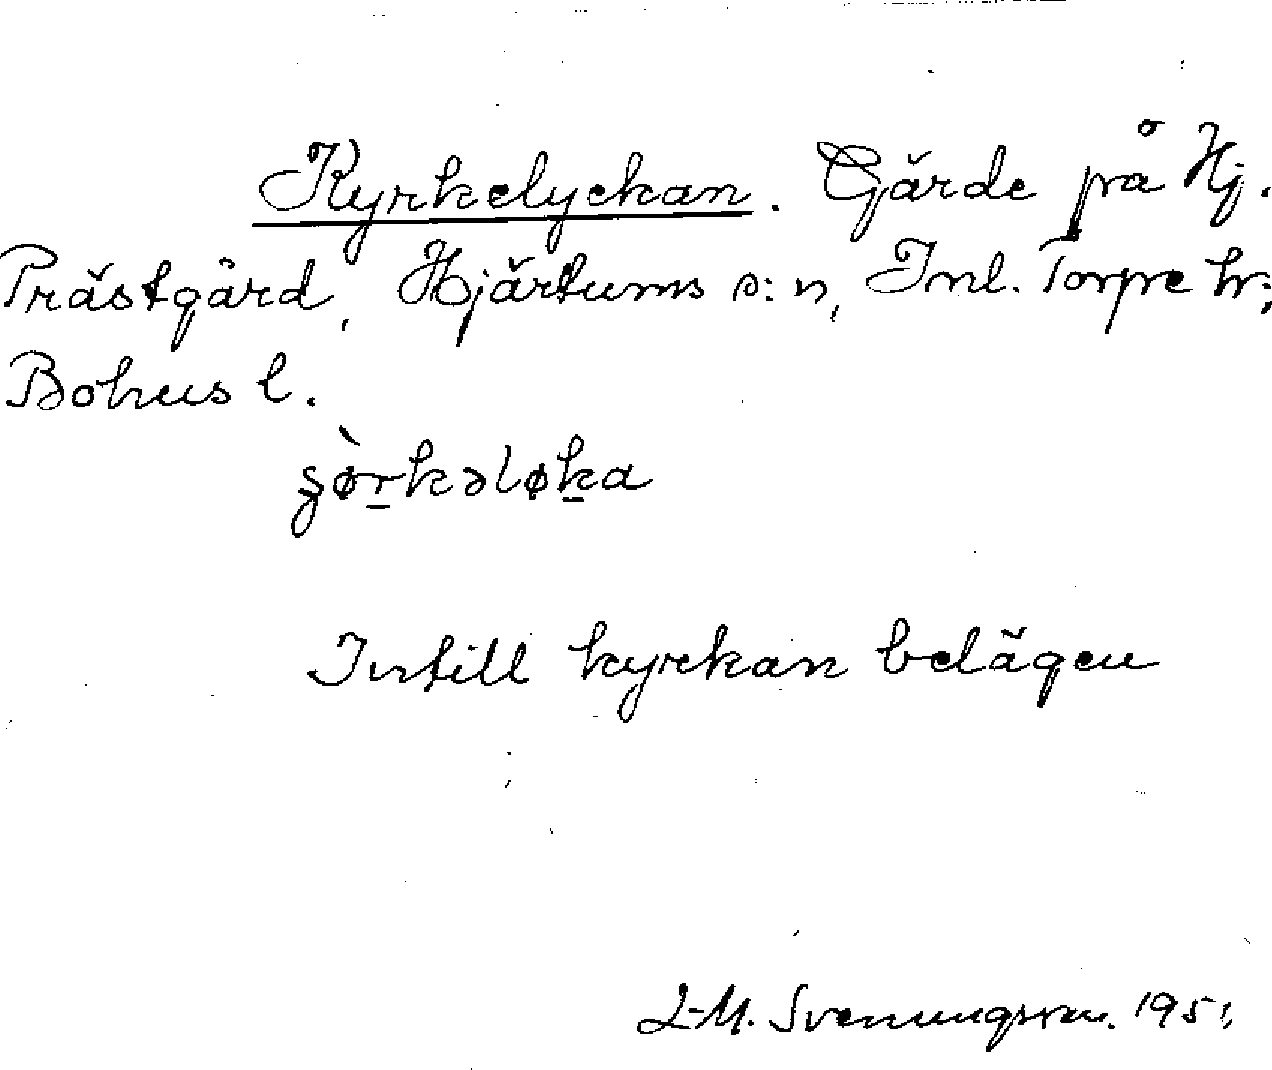 Kyrkelyckan. Gärde på Hj.
Prästgård, Hjärtums s:n, Inl. Torpe hr;
Bohus l.
ʂø̀rkəløka
Intill kyrkan belägen
L-M. Svenungsson. 1951.